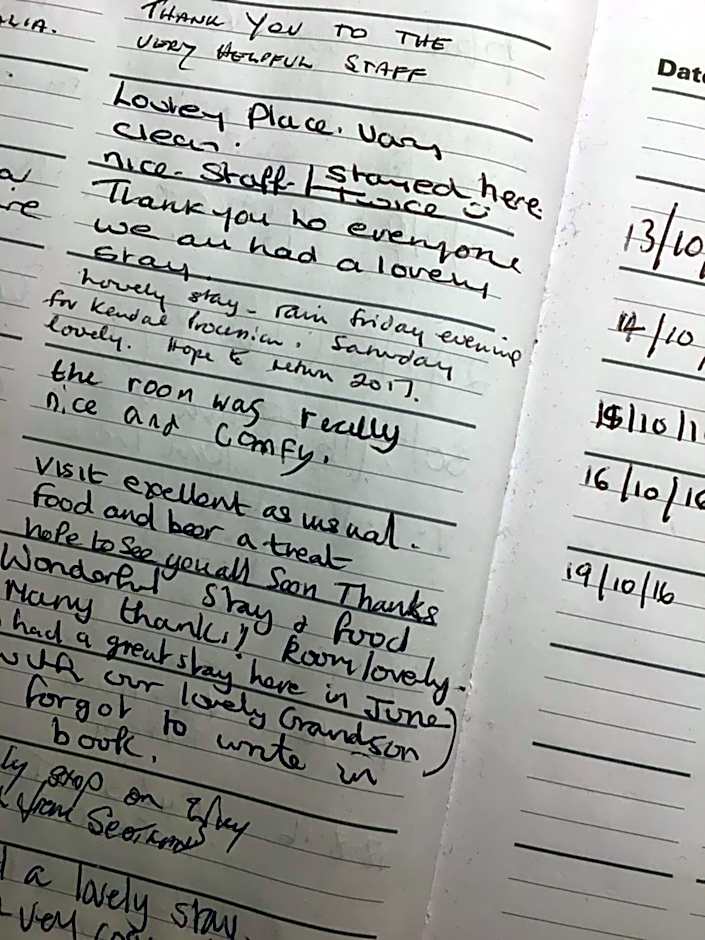 LIA.
THANK YOU TO THE
VERY HELPFUL STAFF
Lovley Place. Vary
clean.
nice. Staff. I stayed here
twice ☺
Thank you to everyone
we all had a lovely
stay.
Lovely stay - rain friday evening
for Kendal Saturday
lovely. Hope to return 2017.
the room was really
nice and comfy.
Visit exellent as usual.
food and beer a treat
hope to see you all soon Thanks
Wonderful stay & food
Many thanks! Room lovely.
had a great stay here in June)
with our lovely Grandson
forgot to write in
book.
ly stop on
from
a lovely stay.
very
Date
13/10/
14/10/
15/10/1
16/10/16
19/10/16